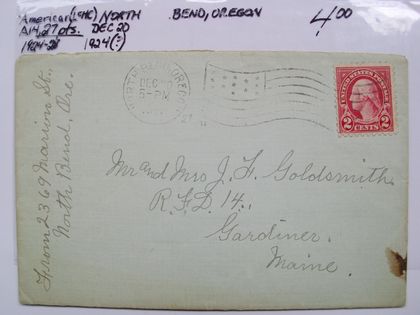 American (19c) NORTH BEND, OREGON 4.00
A14, 27 pts. DEC 20
1924(?)
NORTH BEND, OREGON
DEC
5-PM
UNITED STATES POSTAGE
2 2
CENTS
Mr and Mrs J. F. Goldsmith.
R.F.D. 14,
Gardiner,
Maine.
From 2369 Marion St.,
North Bend, Ore.